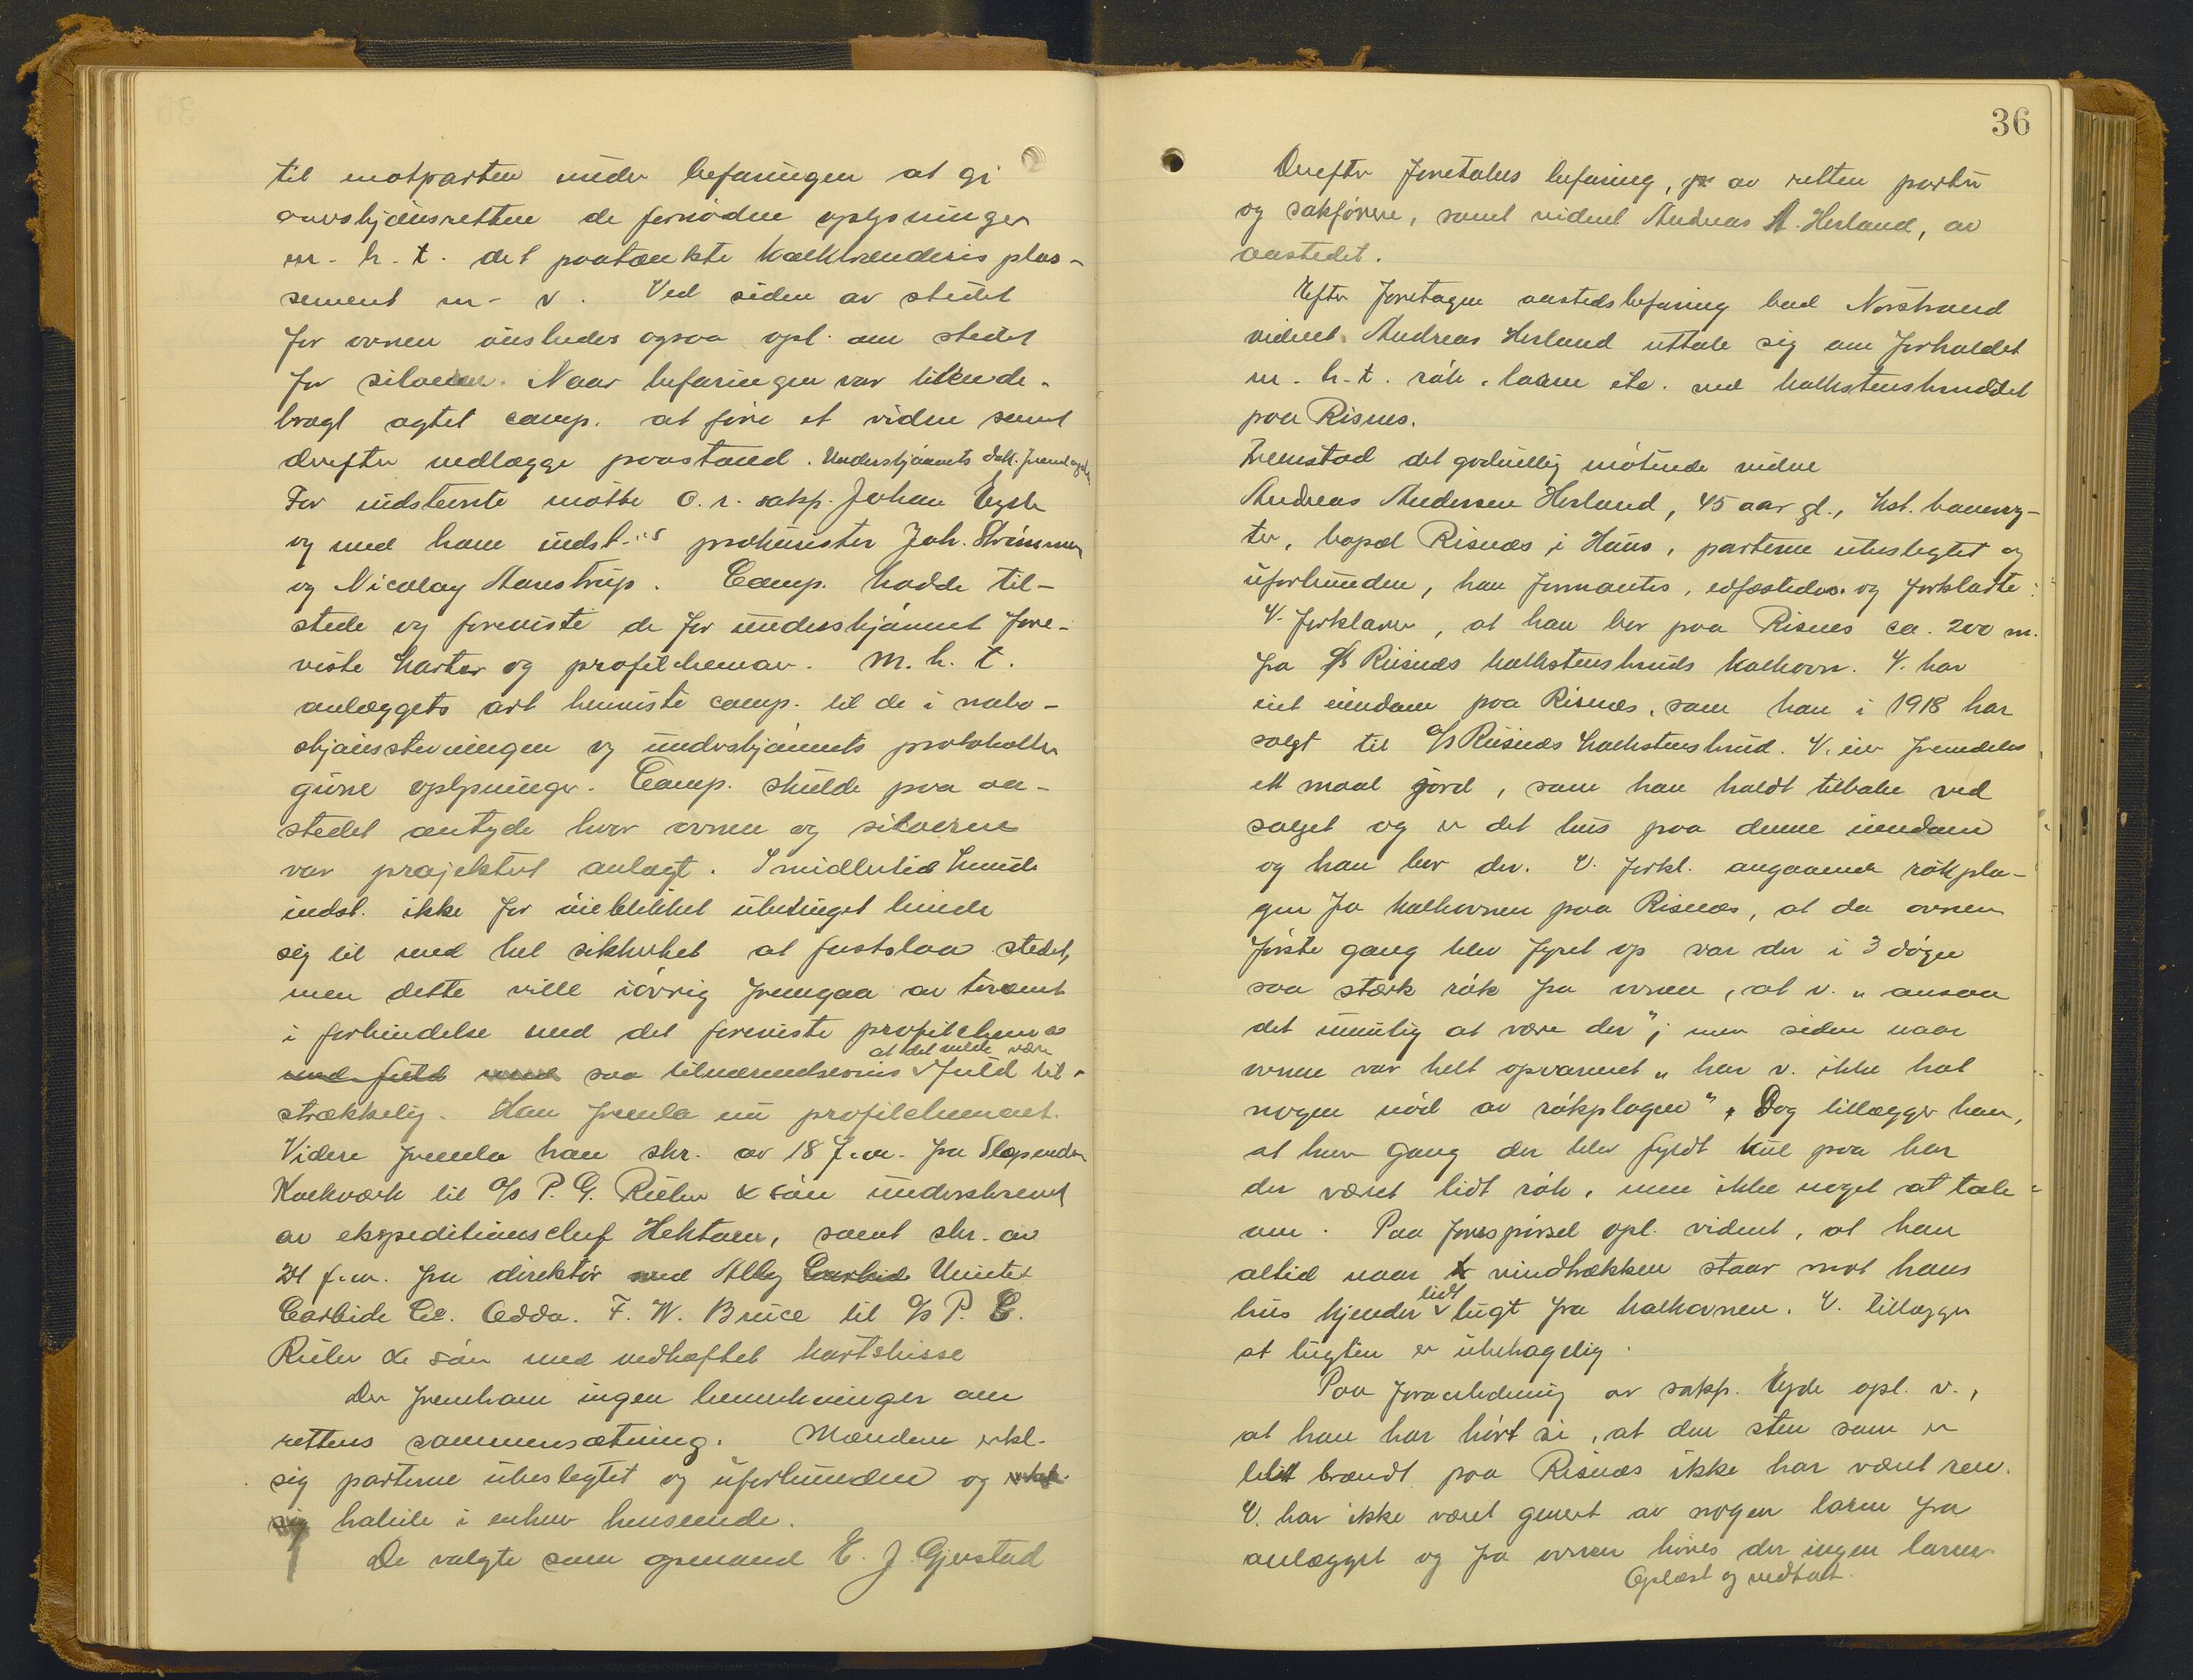 til motparten under befaringen at gi
overskjønsretten de fornødne oplysninger
m. h. t. det paatænkte kalkbrænderis plas-
sement m. v. Ved siden av stedet
for ovnen ønskedes ogsaa opl. om stedet
for siloen. Naar befaringen var tilende-
bragt agtet comp. at føre et vidne samt
derefter nedlægge paastand. Underskjønnets dok. fremlagdes
For indstevnte møtte O. r. sakf. Johan
og med ham indst.s prokurister Joh.
og Nicolay Aanestrup. Comp. hadde til-
stede og foreviste de for underskjønnet fore-
viste karter og profilchemaer. M. h. t.
anlæggets art henviste comp. til de i nabo-
skjønsstevningen og underskjønnets protokoller
givne oplysninger. Comp. skulde paa aa-
stedet antyde hvor ovnen og siloerne
var projektert anlagt. Imidlertid kunde
indst. ikke for øieblikket ubetinget binde
sig til med hel sikkerhet at fastslaa stedet,
men dette ville iøvrig fremgaa av terrænet
i forbindelse med det foreviste profilchema
med fuld saa tilnærmelsesvis at det vilde være fuld til-
strækkelig. Han fremla nu profilchemaet.
Videre fremla han skr. av 18 f.m. fra Slependen
Kalkværk til A/S P. G. Rieber & søn underskrevet
av ekspeditionschef Hektoen, samt skr. av
21 f.m. fra direktør med Alby Carbide United
Carbide Co. Odda. F. W. Bruce til A/S P. G.
Rieber & søn med vedhæftet kartskisse
Der fremkom ingen bemerkninger om
rettens sammensætning. Mændene erkl.
sig parterne ubeslegtet og uforbundne og erkl.
sig habile i enhver henseende.
De valgte som opmand E. J. Gjerstad
36
Derefter foretokes befaring, av retten parter
og sakførere, samt vidnet Andreas A. Herland, av
aastedet.
Efter foretagen aastedsbefaring bad Norstrand
vidnet Andreas Herland uttale sig om forholdet
m. h. t. røk, larm etc. ved kalkstensbruddet
paa Risnes.
Fremstod det godvillig møtende vidne
Andreas Andersen Herland, 45 aar gl., bst. banevog-
ter, bopæl Risnæs i Haus, parterne ubeslegtet og
uforbunden, han formantes, edfæstedes og forklarte:
V. forklarer, at han bor paa Risnes ca. 200 m.
fra A/S Risnæs kalkstensbruds kalkovn. V. har
eiet eiendom paa Risnæs, som han i 1918 har
solgt til A/S Risnæs kalkstensbrud. V. eier fremdeles
ett maal jord, som han holdt tilbake ved
salget og er det hus paa denne eiendom
og han bor der. V. forkl. angaaende røkpla-
gen fra kalkovnen paa Risnæs, at da ovnen
første gang blev fyret op var der i 3 døgn
saa stærk røk fra ovnen, at v. "ansaa
det umulig at være der"; men siden naar
ovnen var helt opvarmet "har v. ikke hat
nogen nød av røkplagen". Dog tillægger han,
at hver gang der blev fyldt kul paa har
der været lidt røk, men ikke noget at tale
om. Paa forespørsel opl. vidnet, at han
altid naar vindtrækken staar mot hans
hus kjender lidt lugt fra kalkovnen. V. tillægger
at lugten er ubehagelig.
Paa foranledning av sakf. opl. v.,
at han har hørt si, at den sten som er
blit brændt paa Risnæs ikke har været ren.
V. har ikke været genert av nogen larm fra
anlægget og fra ovnen høres der ingen larm.
Oplæst og vedtat.